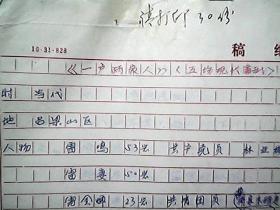 请打印30份
10·31·828
稿纸
《一户两家人》（五场现代
时 当代
地 吕梁山区
人物 雷 鸣 53岁 共产党员 林业
雷 妻 50岁
雷金 23岁 共青团员